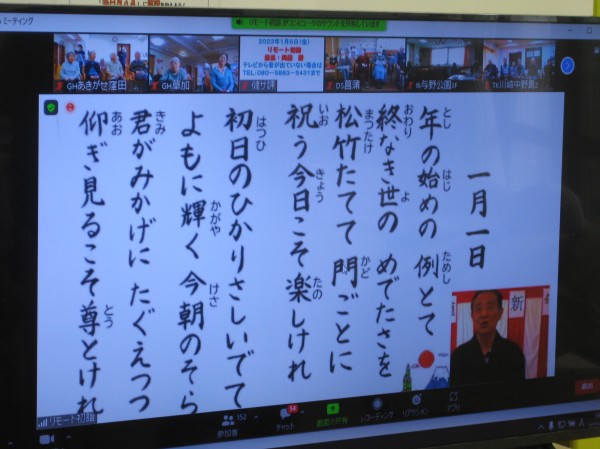 ミーティング
リモート初詣 がコンピュータのサウンドを共有しています
2023年1月6日(金)
リモート初詣
テレビから音が出ていない場合は
GHあきがせ窪田
GH草加
DS菖蒲
与野公園
一月一日
年の始めの 例とて
とし はじ ためし
終なき世の めでたさを
おわり よ
松竹たてて 門ごとに
まつたけ かど
祝う今日こそ 楽しけれ
いお きょう たの
初日のひかり さしいでて
はつひ
よもに輝く 今朝のそら
かがや けさ
君がみかげに たぐえつつ
きみ
仰ぎ見るこそ 尊とけれ
あお とう
新
リモート初詣
参加者
152
チャット
画面の共有
レコーディング
リアクション
アプリ